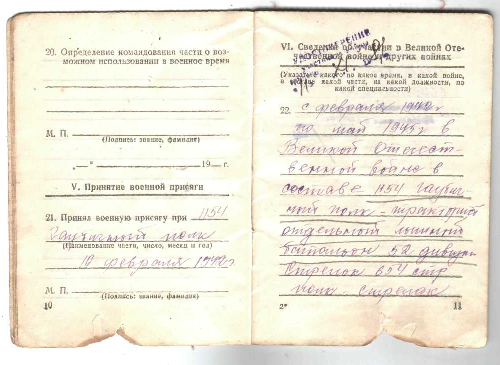 20. Определение командования части о воз-
можном использовании в военное время
М. П.
(Подпись: звание, фамилия)
„—“ 19 — г.
V. Принятие военной присяги
21. Принял военную присягу при 1154
полк
(наименование части, число, месяц и год)
19 февраля 1942г
М. П.
(Подпись: звание, фамилия)
10
VI. Сведения об участии в Великой Оте-
чественной войне и других войнах
(Указать с какого по какое время, в какой войне,
в составе какой части, на какой должности, по
какой специальности)
22. с февраля 1942г
по май 1945г в
Великой Отечест-
венной войне в
составе 1154
полк -
отдельный
батальон 52 дивизии
Стрелок 654 стр
полк. стрелок
2*
11